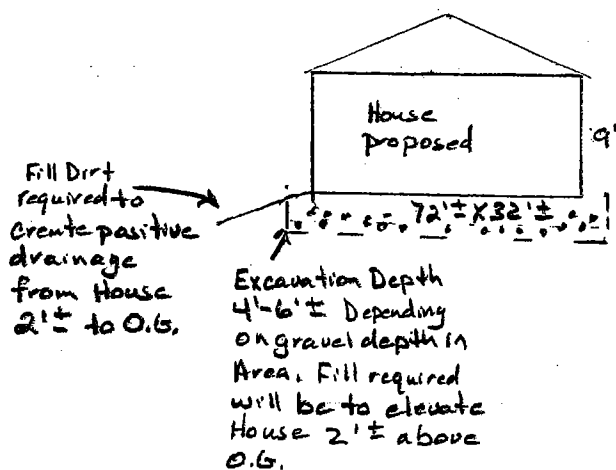 House
proposed
9'
72'± X 32'±
Fill Dirt
required to
create positive
drainage
from House
2'± to O.G.
Excavation Depth
4'-6'± Depending
on gravel depth in
Area. Fill required
will be to elevate
House 2'± above
O.G.